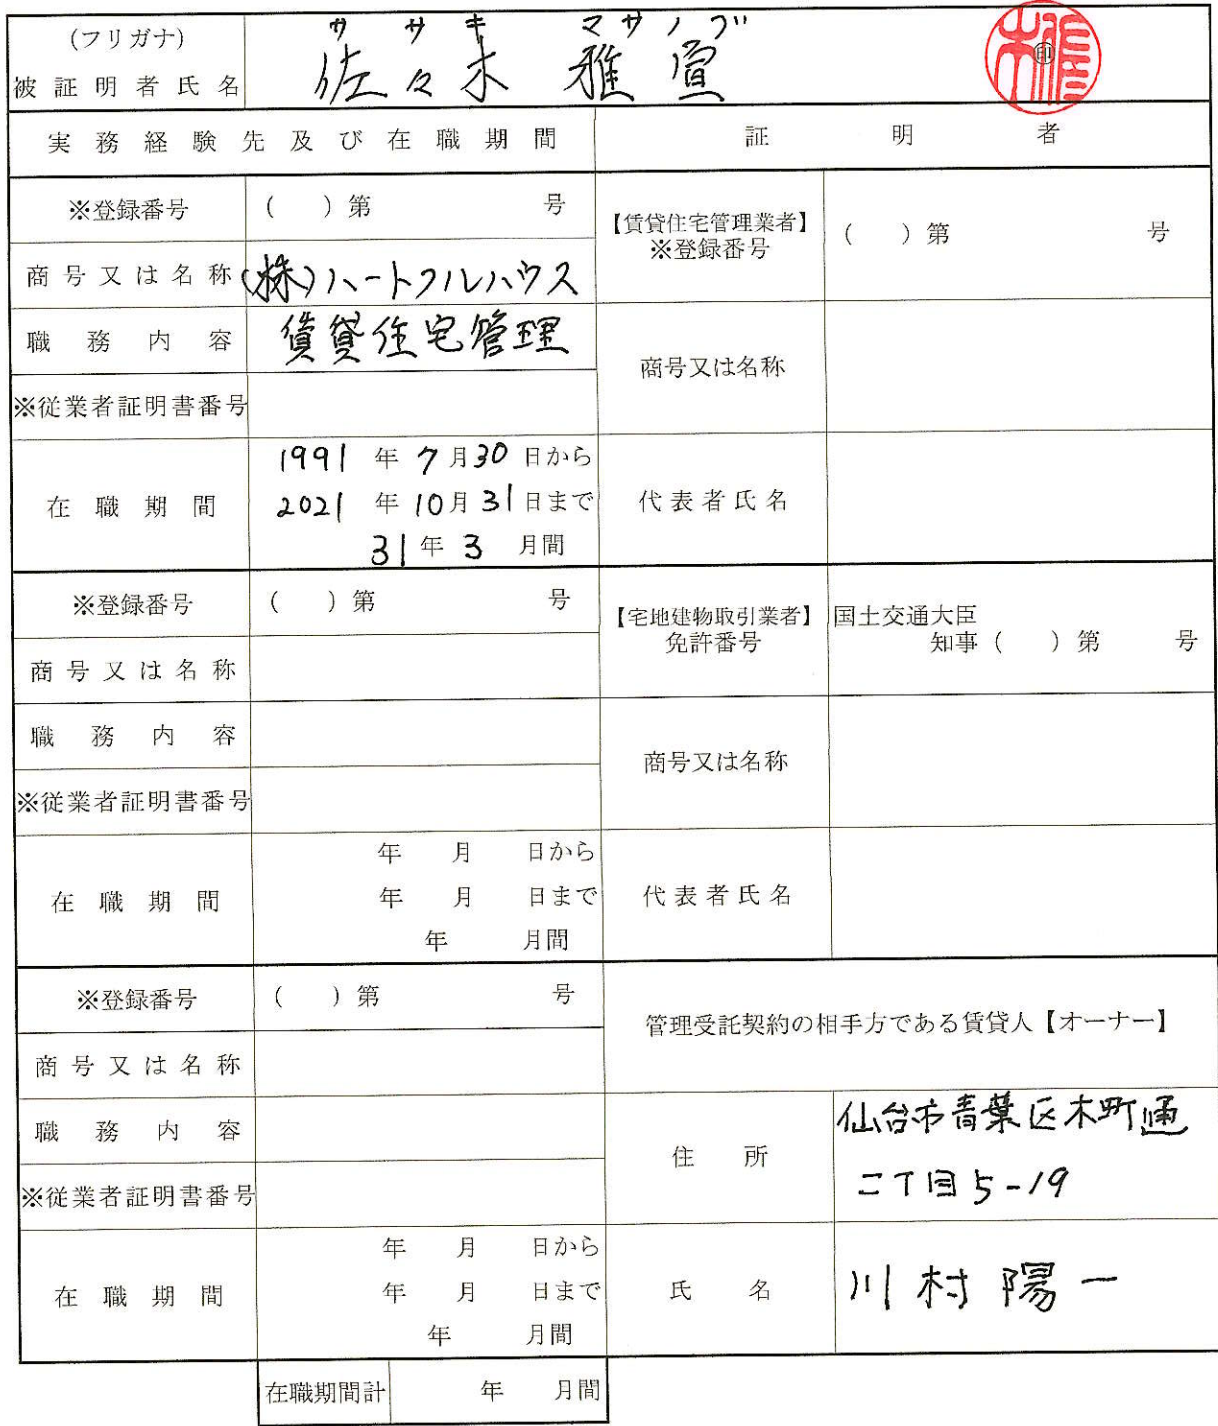 サ サ キ マ サ ノ ブ
(フリガナ)
被証明者氏名 佐々木 雅宣 ㊞
実務経験先及び在職期間 証明者
※登録番号 ( ) 第 号 【賃貸住宅管理業者】 ※登録番号 ( ) 第 号
商号又は名称 (株)ハートフルハウス
職務内容 賃貸住宅管理 商号又は名称
※従業者証明書番号
在職期間 1991 年 7 月 30 日から
2021 年 10 月 31 日まで 代表者氏名
31 年 3 月間
※登録番号 ( ) 第 号 【宅地建物取引業者】 免許番号 国土交通大臣
知事 ( ) 第 号
商号又は名称
職務内容 商号又は名称
※従業者証明書番号
在職期間 年 月 日から
年 月 日まで 代表者氏名
年 月間
※登録番号 ( ) 第 号 管理受託契約の相手方である賃貸人【オーナー】
商号又は名称
職務内容 住所 仙台市青葉区木町通
二丁目5-19
※従業者証明書番号
在職期間 年 月 日から
年 月 日まで 氏名 川村陽一
年 月間
在職期間計 年 月間